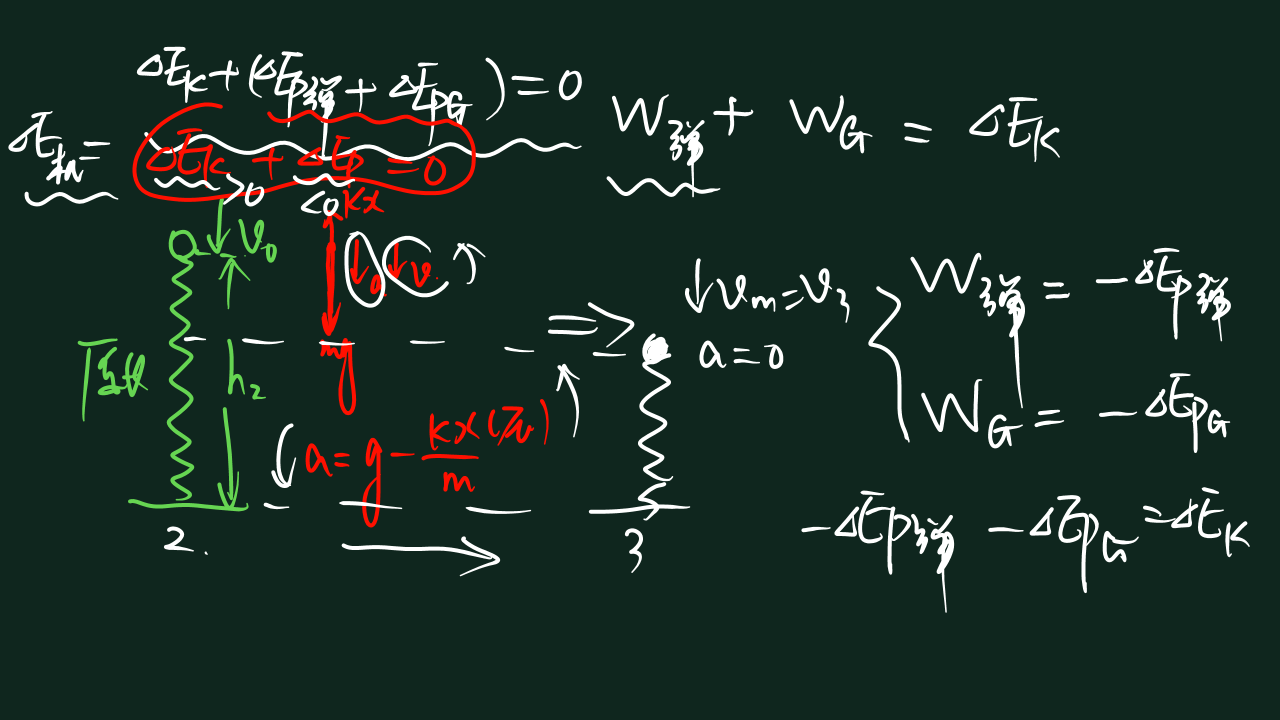 ΔEk+(ΔEp弹+ΔEpG)=0
ΔE机=ΔEk+ΔEp=0
>0 <0
W弹+WG=ΔEk
kx
v₀
a v
mg
原长
h₂
a=g-kx(不)/m
2.
3
vm=v₃
a=0
W弹=-ΔEp弹
WG=-ΔEpG
-ΔEp弹-ΔEpG=ΔEk